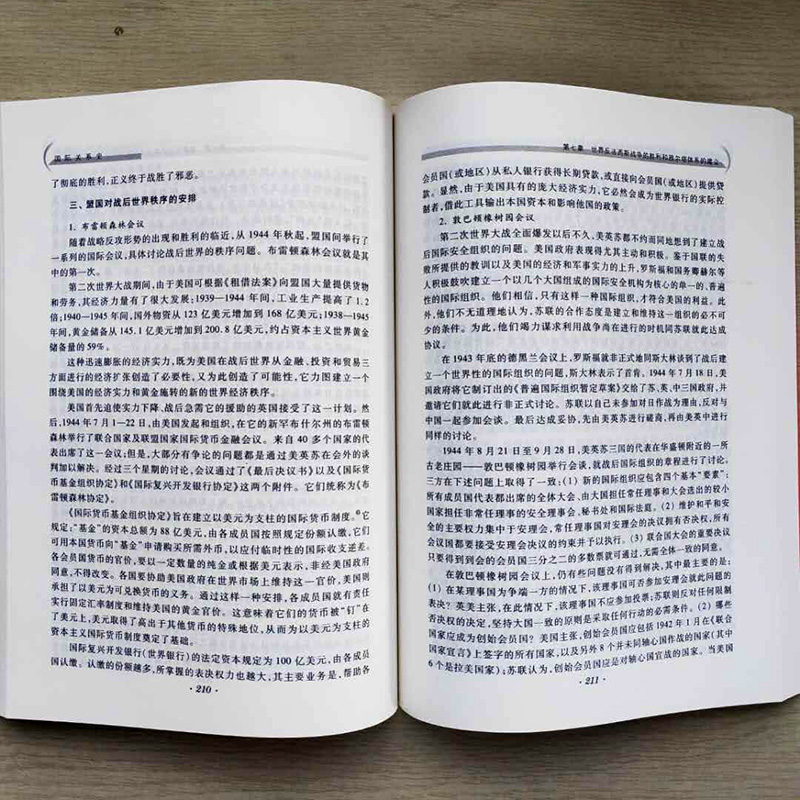 国际关系史
了彻底的胜利,正义终于战胜了邪恶。
三、盟国对战后世界秩序的安排
1. 布雷顿森林会议
随着战略反攻形势的出现和胜利的临近,从 1944 年秋起,盟国间举行了
一系列的国际会议,具体讨论战后世界的秩序问题。布雷顿森林会议就是其
中的第一次。
第二次世界大战期间,由于美国可根据《租借法案》向盟国大量提供货物
和劳务,其经济力量有了很大发展:1939—1944 年间,工业生产提高了 1.2
倍;1940—1945 年间,国外物资从 123 亿美元增加到 168 亿美元;1938—1945
年间,黄金储备从 145.1 亿美元增加到 200.8 亿美元,约占资本主义世界黄金
储备量的 59%。
这种迅速膨胀的经济实力,既为美国在战后世界从金融、投资和贸易三
方面进行的经济扩张创造了必要性,又为此创造了可能性,它力图建立一个
围绕美国的经济实力和黄金施转的新的世界经济秩序。
美国首先迫使实力下降、战后急需它的援助的英国接受了这一计划。然
后,1944 年 7 月 1—22 日,由美国发起和组织,在它的新罕布什尔州的布雷顿
森林举行了联合国家及联盟国家国际货币金融会议。来自 40 多个国家的代
表出席了这一会议;但是,大部分有争论的问题都是通过美英苏在会外的谈
判加以解决。经过三个星期的讨论,会议通过了《最后决议书》以及《国际货
币基金组织协定》和《国际复兴开发银行协定》这两个附件。它们统称为《布
雷顿森林协定》。
《国际货币基金组织协定》旨在建立以美元为支柱的国际货币制度。它
规定:“基金”的资本总额为 88 亿美元,由各成员国按照规定份额认缴,它们
可用本国货币向“基金”申请购买所需外币,以应付临时性的国际收支逆差。
各会员国货币的官价,要以一定数量的纯金或根据美元表示,非经美国政府
同意,不得改变。各国要协助美国政府在世界市场上维持这一官价,美国则
承担了以美元为可兑换货币的义务。通过这样一种安排,各成员国就有责任
实行固定汇率制度和维持美国的黄金官价。这意味着它们的货币被“钉”在
了美元上,美元取得了高出于其他货币的特殊地位,从而为以美元为支柱的
资本主义国际货币制度奠定了基础。
国际复兴开发银行(世界银行)的法定资本规定为 100 亿美元,由各成员
国认缴。认缴的份额越多,所掌握的表决权力也越大,其主要业务是,帮助各
· 210 ·
第七章 世界反法西斯战争的胜利和雅尔塔体系的建立
会员国(或地区)从私人银行获得长期贷款,或直接向会员国(或地区)提供贷
款。显然,由于美国具有的庞大经济实力,它必然会成为世界银行的实际控
制者,借此工具输出本国资本和影响他国的政策。
2. 敦巴顿橡树园会议
第二次世界大战全面爆发以后不久,美英苏都不约而同地想到了建立战
后国际安全组织的问题。美国政府表现得尤其主动和积极。鉴于国联的失
败所提供的教训以及美国的经济和军事实力的上升,罗斯福和国务卿赫尔等
人积极鼓吹建立一个以几个大国组成的国际安全机构为核心的单一的、普遍
性的国际组织。他们相信,只有这样一种国际组织,才符合美国的利益。此
外,他们不无道理地认为,苏联的合作态度是建立和维持这一组织的必不可
少的条件。为此,他们竭力谋求利用战争尚在进行的时机同苏联就此达成
协议。
在 1943 年底的德黑兰会议上,罗斯福就非正式地同斯大林谈到了战后建
立一个世界性的国际组织的问题,斯大林表示了首肯。1944 年 7 月 18 日,美
国政府将它制订出的《普遍国际组织暂定草案》交给了苏、英、中三国政府,并
邀请它们就此进行非正式讨论。苏联以自己未参加对日作战为理由,反对与
中国一起参加会谈。最后达成妥协,先由美英苏进行磋商,再由美英中进行
同样的讨论。
1944 年 8 月 21 日至 9 月 28 日,美英苏三国的代表在华盛顿附近的一所
古老庄园——敦巴顿橡树园举行会谈,就战后国际组织的章程进行了讨论。
三方在下述问题上取得了一致:(1) 新的国际组织应包含四个基本“要素”:
所有成员国代表都出席的全体大会、由大国担任常任理事和大会选出的较小
国家担任非常任理事的安全理事会、秘书处和国际法庭。(2) 维护和平和安
全的主要权力集中于安理会,常任理事国对安理会的决议拥有否决权,所有
会议国都要接受安理会决议的约束并予以执行。(3) 联合国大会的重要决议
只要得到到会的会员国三分之二的多数票就可通过,无需全体一致的同意。
在敦巴顿橡树园会议上,仍有些问题没有得到解决,其中最主要的是:
(1) 在某理事国为争端一方的情况下,该理事国可否参加安理会就此问题的
表决?英美主张,在此情况下,该理事国不应参加投票;苏联则反对任何限制
否决权的决定,坚持大国一致的原则是采取任何行动的必需条件。(2) 哪些
国家应成为创始会员国?美国主张,创始会员国应包括 1942 年 1 月在《联合
国家宣言》上签字的所有国家,以及另外 8 个并未同轴心国作战的国家(其中
6 个是拉美国家);苏联认为,创始会员国应是对轴心国宣战的国家。当美国
· 211 ·